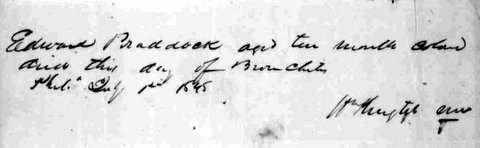 Edward Braddock aged ten months colored
died this day of Bronchitis
Phila July 1st 1845
Wm